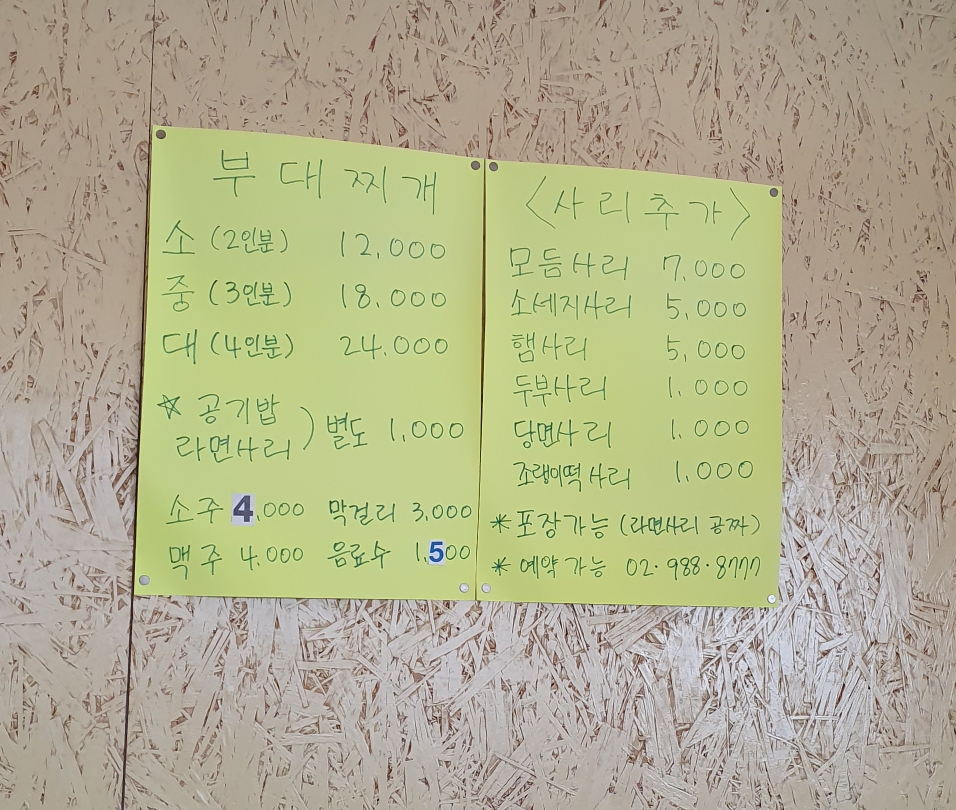 부대찌개
소 (2인분) 12,000
중 (3인분) 18,000
대 (4인분) 24,000
☆ 공기밥
라면사리 ) 별도 1,000
소주 4,000 막걸리 3,000
맥주 4,000 음료수 1,500
〈사리추가〉
모듬사리 7,000
소세지사리 5,000
햄사리 5,000
두부사리 1,000
당면사리 1,000
조랭이떡 사리 1,000
* 포장가능 (라면사리 공짜)
* 예약가능 02·988·8777